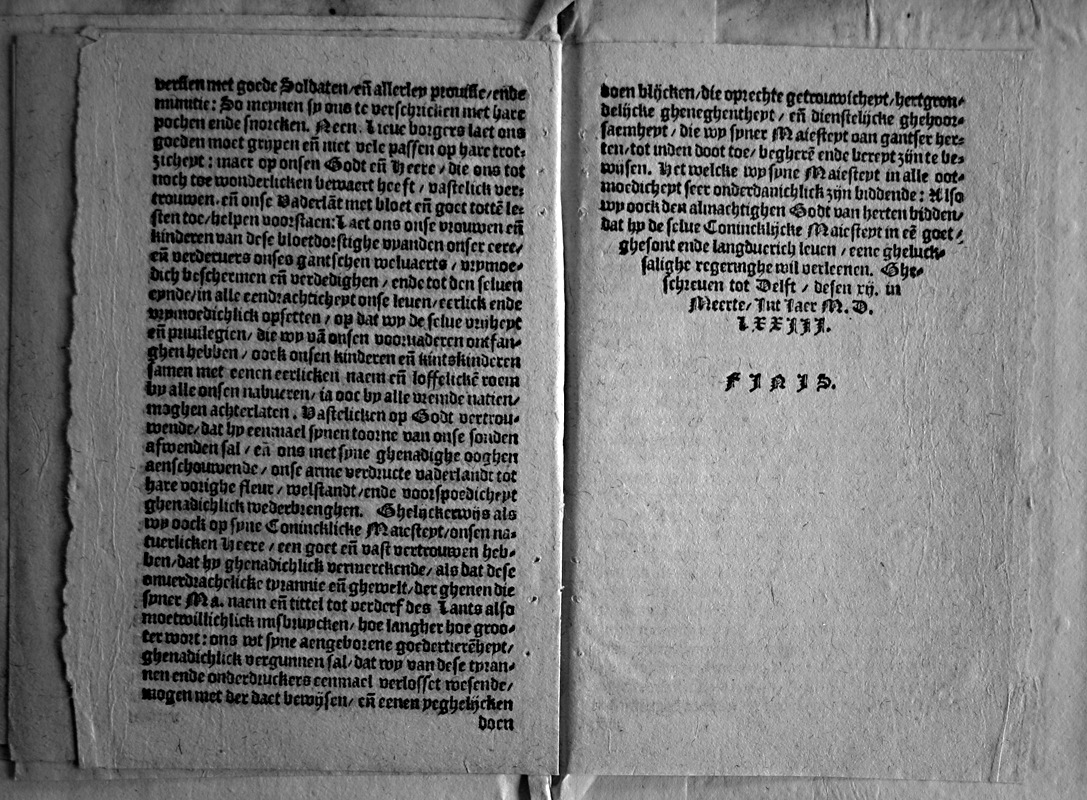 versien met goede Soldaten/ en̄ allerley prouisie/ ende
munitie: So meynen sy ons te verschricken met hare
pochen ende snorcken. Neen. Lieue borgers laet ons
goeden moet grypen en̄ niet vele passen op hare trot⸗
zicheyt: maer op onsen Godt en̄ Heere/ die ons tot
noch toe wonderlicken bewaert heeft/ vastelick ver⸗
trouwen/ en̄ onse Vaderlāt met bloet en̄ goet tottē le⸗
sten toe/ helpen voorstaen: Laet ons onse vrouwen en̄
kinderen van dese bloetdorstighe vyanden onser eere/
en̄ verderuers onses gantschen weluaerts/ vrymoe⸗
dich beschermen en̄ verdedighen/ ende tot den seluen
eynde/ in alle eendrachticheyt onse leuen/ eerlick ende
vrymoedichlick opsetten/ op dat wy de selue vrijheyt
en̄ priuilegien/ die wy vā onsen vooruaderen ontfan⸗
ghen hebben/ oock onsen kinderen en̄ kintskinderen
samen met eenen eerlicken naem en̄ loffelickē roem
by alle onsen nabueren/ ia ooc by alle vremde natien/
moghen achterlaten. Vastelicken op Godt vertrou⸗
wende/ dat hy eenmael synen toorne van onse sonden
afwenden sal/ en̄ ons met syne ghenadighe ooghen
aenschouwende/ onse arme verdructe vaderlandt tot
hare vorighe fleur/ welstandt/ ende voorspoedicheyt
ghenadichlick wederbrenghen. Ghelijckerwijs als
wy oock op syne Conincklicke Maiesteyt/ onsen na⸗
tuerlicken Heere/ een goet en̄ vast vertrouwen heb⸗
ben/ dat hy ghenadichlick vermerckende/ als dat dese
onuerdrachelicke tyrannie en̄ ghewelt/ der ghenen die
syner Ma. naem en̄ tittel tot verderf des Lants also
moetwillichlick misbruycken/ hoe langher hoe groo⸗
ter wort: ons wt syne aengeborene goedertierēheyt/
ghenadichlick vergunnen sal/ dat wy van dese tyran⸗
nen ende onderdruckers eenmael verlosset wesende/
mogen met der daet bewijsen/ en̄ eenen yeghelijcken
doen
doen blijcken/ die oprechte getrouwicheyt/ hertgron⸗
delijcke gheneghentheyt/ en̄ dienstelijcke ghehoor⸗
saemheyt/ die wy syner Maiesteyt van gantser her⸗
ten/ tot inden doot toe/ begherē ende bereyt zijn te be⸗
wijsen. Het welcke wy syne Maiesteyt in alle oot⸗
moedicheyt seer onderdanichlick zijn biddende: Also
wy oock den almachtighen Godt van herten bidden/
dat hy de selue Conincklijcke Maiesteyt in eē goet/
ghesont ende langduerich leuen/ eene gheluck⸗
salighe regeringhe wil verleenen. Ghe⸗
schreuen tot Delft/ desen xij. in
Meerte/ Int Iaer M. D.
LXXIII.
FINIS.